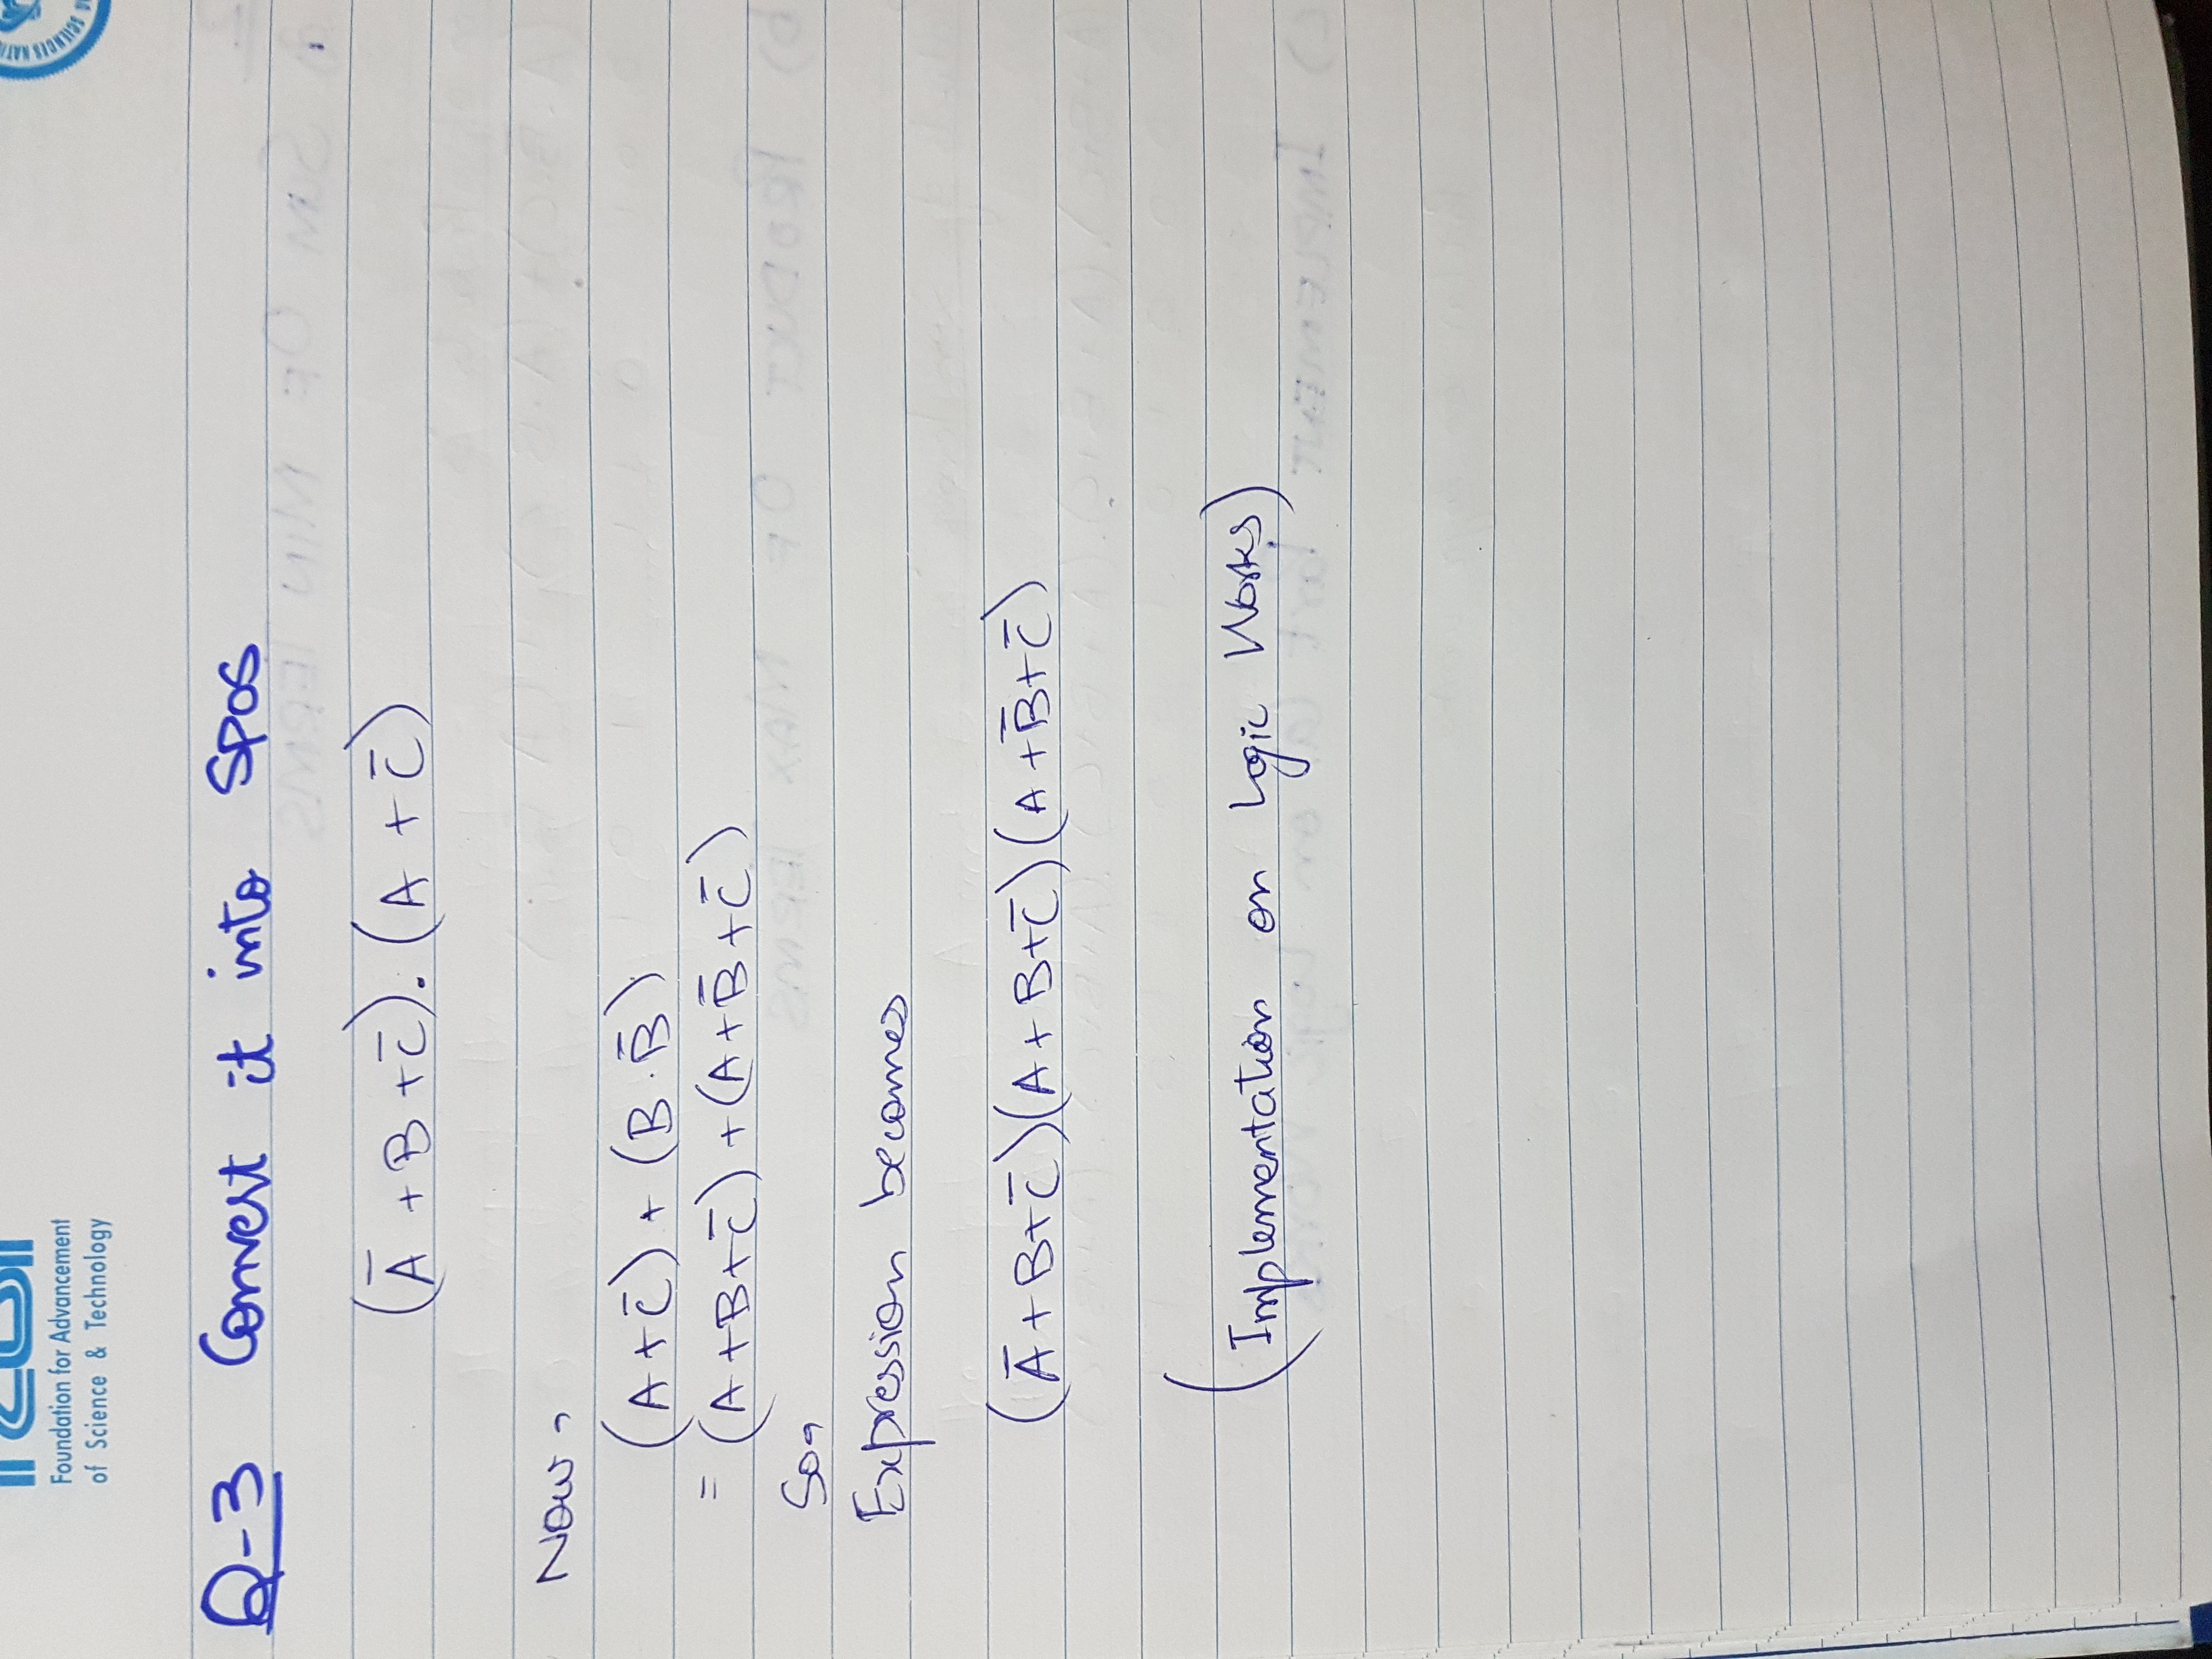 Foundation for Advancement
of Science & Technology
Q-3 Convert it into SPOS
(A̅ + B + C̅) . (A + C̅)
Now,
(A + C̅) + (B . B̅)
= (A + B + C̅) + (A + B̅ + C̅)
So,
Expression becomes
(A̅ + B + C̅)(A + B + C̅)(A + B̅ + C̅)
(Implementation on Logic Works)